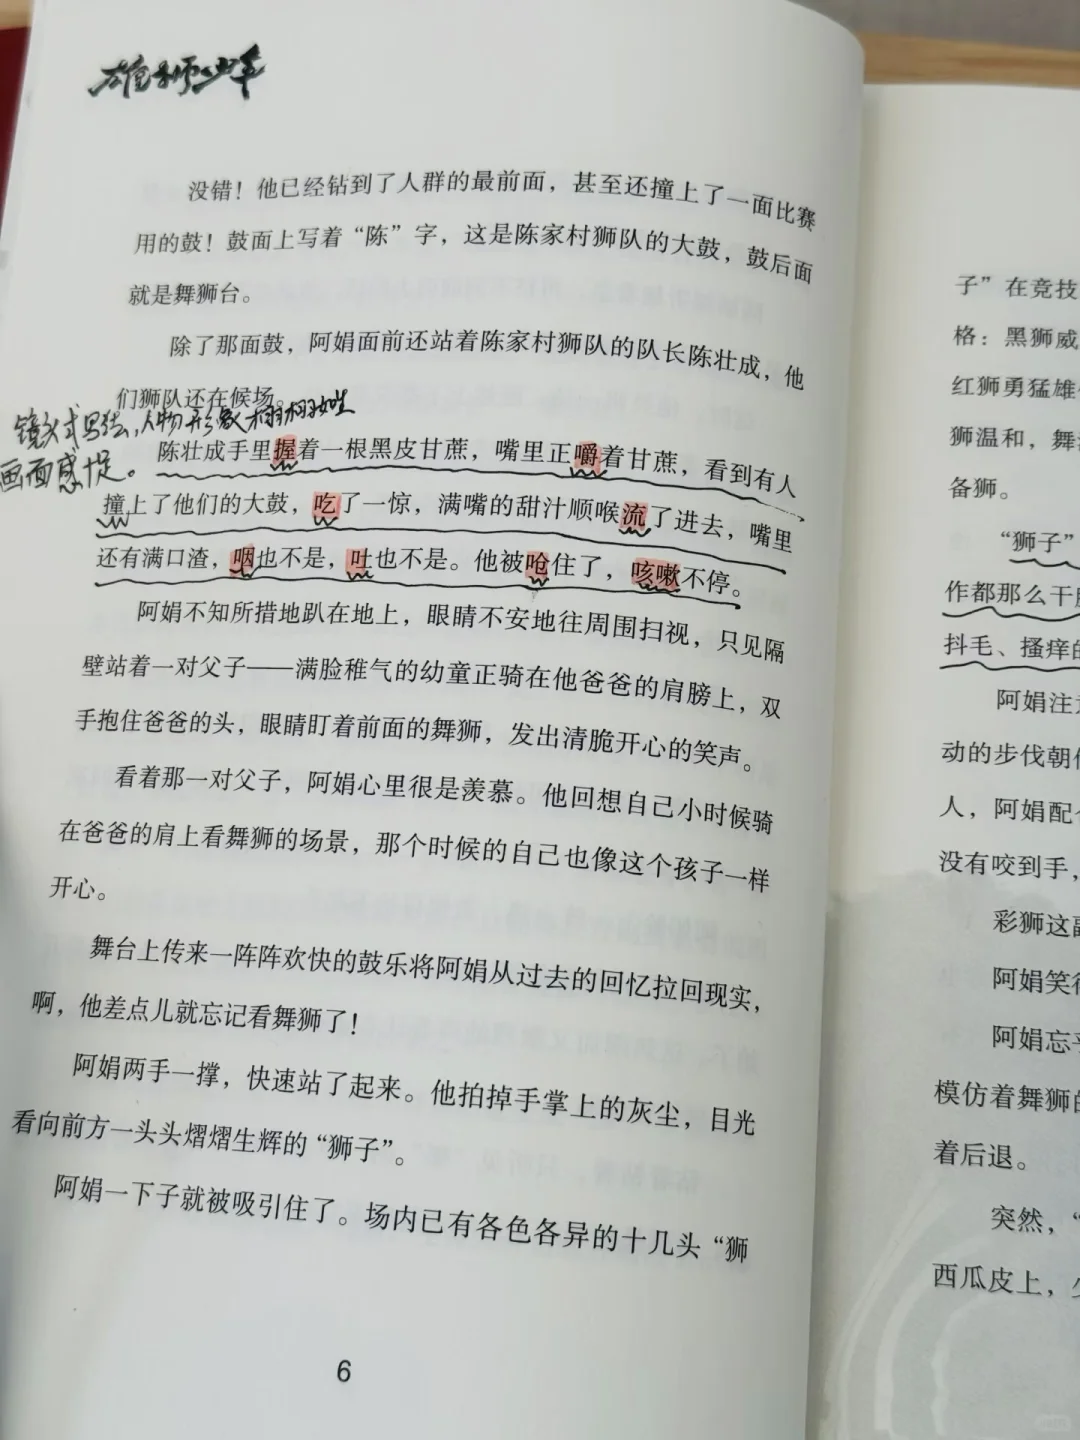 雄狮少年
没错！他已经钻到了人群的最前面，甚至还撞上了一面比赛
用的鼓！鼓面上写着“陈”字，这是陈家村狮队的大鼓，鼓后面
就是舞狮台。
除了那面鼓，阿娟面前还站着陈家村狮队的队长陈壮成，他
们狮队还在候场。
镜头式写法，人物形象栩栩如生
画面感足。
陈壮成手里握着一根黑皮甘蔗，嘴里正嚼着甘蔗，看到有人
撞上了他们的大鼓，吃了一惊，满嘴的甜汁顺喉流了进去，嘴里
还有满口渣，咽也不是，吐也不是。他被呛住了，咳嗽不停。
阿娟不知所措地趴在地上，眼睛不安地往周围扫视，只见隔
壁站着一对父子——满脸稚气的幼童正骑在他爸爸的肩膀上，双
手抱住爸爸的头，眼睛盯着前面的舞狮，发出清脆开心的笑声。
看着那一对父子，阿娟心里很是羡慕。他回想自己小时候骑
在爸爸的肩上看舞狮的场景，那个时候的自己也像这个孩子一样
开心。
舞台上传来一阵阵欢快的鼓乐将阿娟从过去的回忆拉回现实，
啊，他差点儿就忘记看舞狮了！
阿娟两手一撑，快速站了起来。他拍掉手掌上的灰尘，目光
看向前方一头头熠熠生辉的“狮子”。
阿娟一下子就被吸引住了。场内已有各色各异的十几头“狮
6
子”在竞技
格：黑狮威
红狮勇猛雄
狮温和，舞
备狮。
“狮子”
作都那么干
抖毛、搔痒的
阿娟注
动的步伐朝
人，阿娟配
没有咬到手，
彩狮这
阿娟笑
阿娟忘
模仿着舞狮的
着后退。
突然，“
西瓜皮上，